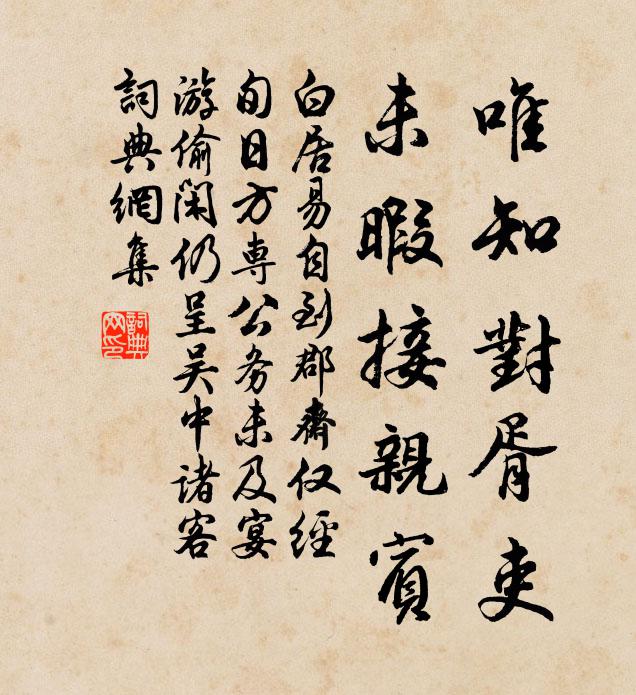 唯知對胥吏
未暇接親賓
白居易自到郡齋仅經
旬日方專公务未及宴
游偷閑仍呈吴中諸客
詞典網集
詞典網印